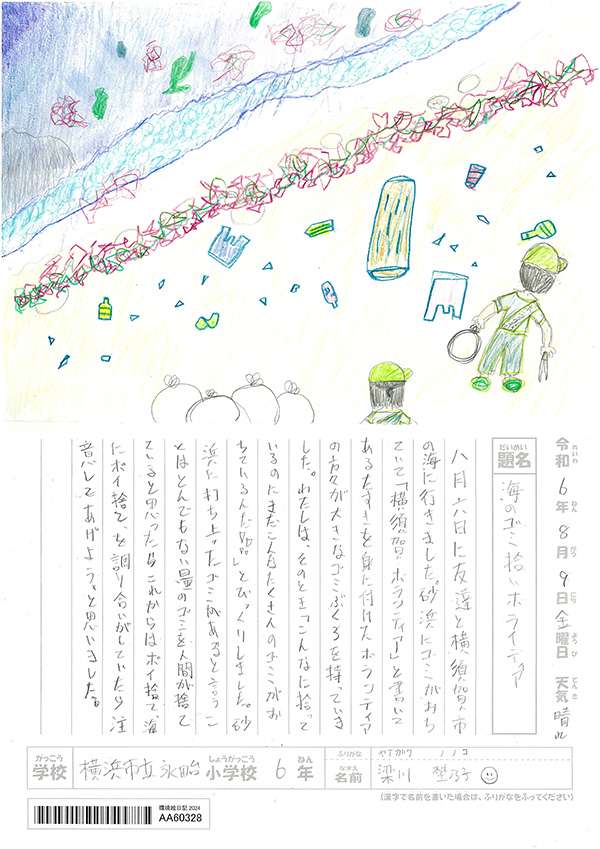 令和6年8月9日金曜日 天気 晴れ
題名 海のゴミ拾いボライティア
八月六日に友達と横須賀市
の海に行きました。砂浜にゴミがおち
ていて「横須賀ボランティアー」と書いて
あるたすきを身に付けたボランティア
の方々が大きなゴミぶくろを持っていま
した。わたしは、そのとき「こんなに拾って
いるのにまだこんなたくさんのゴミがお
ちているんだ。」とびっくりしました。砂
浜に打ち上ったゴミがあると言うこ
とはとんでもない量のゴミを人間が捨て
ていると思ったからこれからはポイ捨て、海
にポイ捨て、を調り合いがしていたら注
意してあげよう。と思いました。
学校 横浜市立永田小学校 6年
ふりがな
名前
(漢字で名前を書いた場合は、ふりがなをふってください)
環境絵日記2024
AA60328